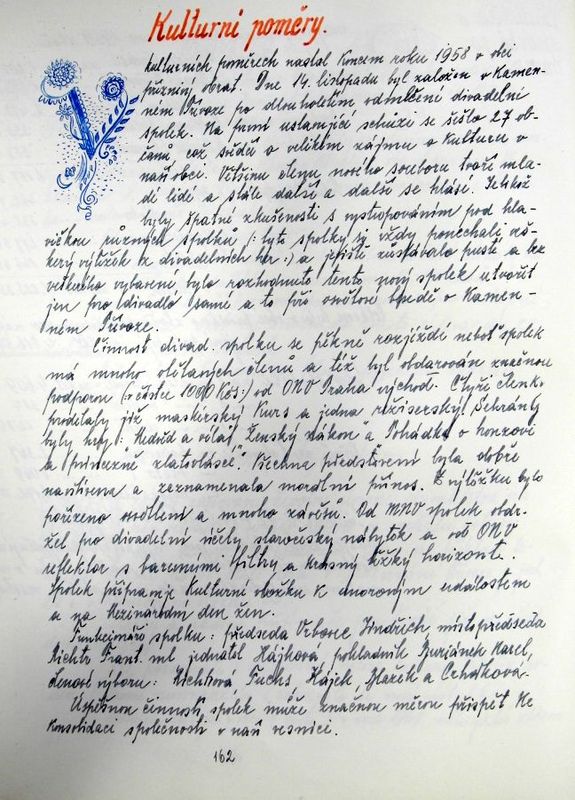 Kulturní poměry.
V kulturních poměrech nastal koncem roku 1958 v obci
příznivý obrat. Dne 14. listopadu byl založen v Kamen-
ném Přívoze po dlouholetém odmlčení divadelní
spolek. Na první ustavující schůzi se sešlo 27 ob-
čanů což svědčí o velikém zájmu o kulturu v
naší obci. Většinu členů nového souboru tvoří mla-
dí lidé a stále další a další se hlásí. Jelikož
byly špatné zkušenosti s vystupováním pod hla-
vičkou různých spolků (: tyto spolky si vždy ponechali veš-
kerý výtěžek z divadelních her :) a jeviště zůstávalo pusté a bez
veškerého vybavení, bylo rozhodnuto tento nový spolek utvořit
jen pro divadlo samé a to při osvětové besedě v Kamen-
ném Přívoze.
Činnost divad. spolku se pěkně rozjíždí neboť spolek
má mnoho obětavých členů a též byl obdarován značnou
podporou (: částce 1000 Kčs :) od ONV Praha východ. Čtyři členky
prodělaly již maskérský kurs a jedna režisérský. Sehrány
byly hry: "Medvěd a víla", "Ženský zákon" a "Pohádka o honzovi
a princezně zlatovlásce". Všechna představení byla dobře
navštívena a zaznamenala morální přínos. Z výtěžku bylo
pořízeno osvětlení a mnoho závěsů. Od MNV spolek obdr-
žel pro divadelní účely staročeský nábytek a od ONV
reflektor s barevnými filtry a krásný těžký horizont.
Spolek připravuje kulturní vložku k únorovým událostem
a na Mezinárodní den žen.
Funkcionáři spolku: předseda Vrbovec Jindřich místopředseda
Richtr Frant. ml. jednatel Hájková, pokladník Buriánek Karel,
členové výboru: Richtrová, Fuchs, Hájek, Blažek a
Úspěšnou činností spolek může značnou měrou přispět ke
konsolidaci společnosti v naší vesnici.
162